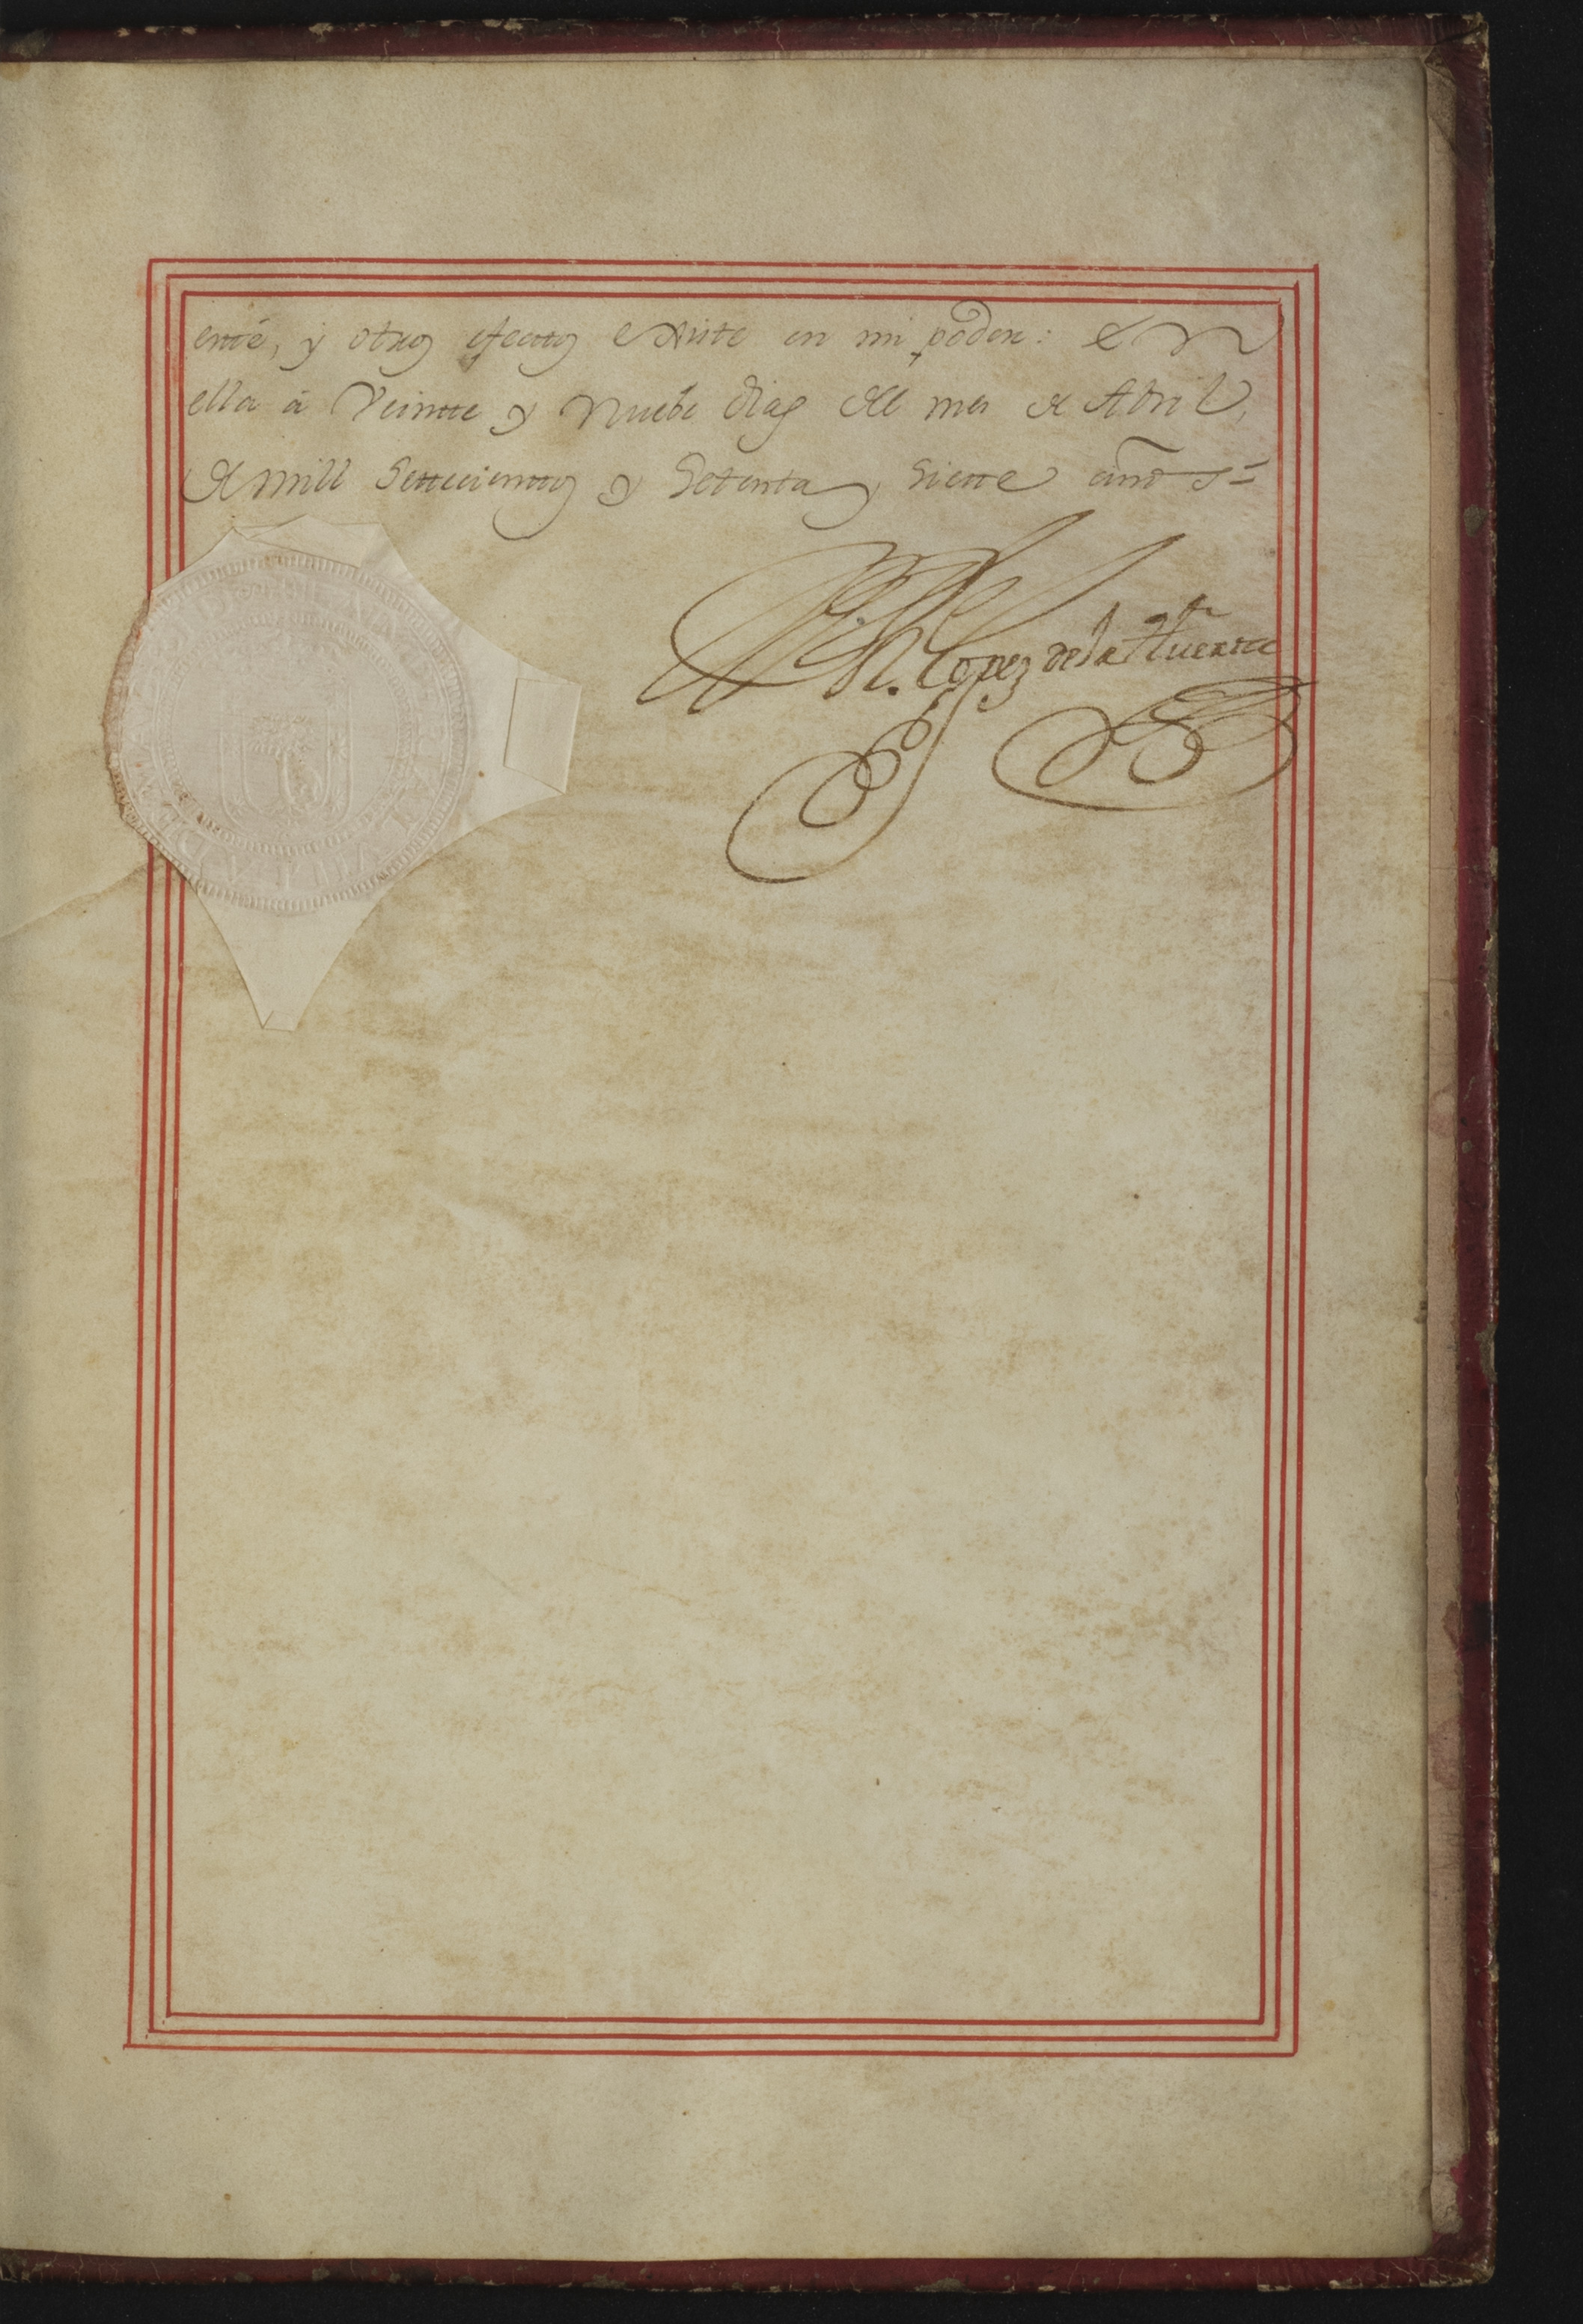 ente, y otros efectos existe en mi poder: en
ella à Veintte y Nuebe dias del mes de Abril,
de mill Settecienttos y Setenta y Siette años=
Lopez de la Huerta